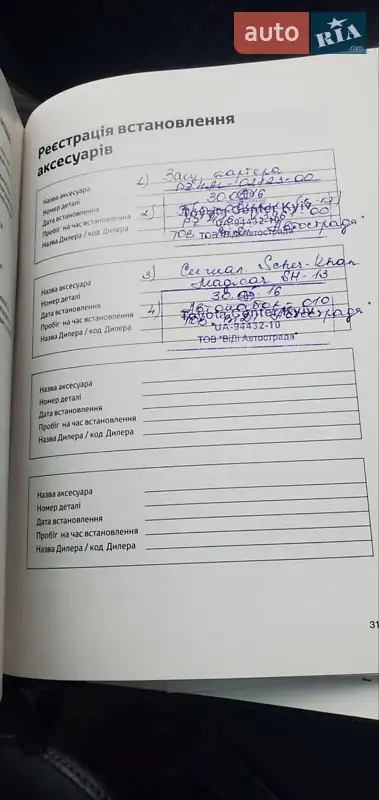 auto RIA
.com
Реєстрація встановлення
аксесуарів
Назва аксесуара 1) Защ. картера
Номер деталі
Дата встановлення 30. 16
Пробіг на час встановлення 2) Toyota Center Kyiv
Назва Дилера / код Дилера ТОВ "ВіДі Автострада"
Назва аксесуара 3) Сигнал. Scher-Khan
Номер деталі Magicar SH-13
Дата встановлення 30. 16
Пробіг на час встановлення 4) Toyota Center Kyiv 010
UA-94432-10
Назва Дилера / код Дилера ТОВ "ВіДі Автострада"
Назва аксесуара
Номер деталі
Дата встановлення
Пробіг на час встановлення
Назва Дилера / код Дилера
Назва аксесуара
Номер деталі
Дата встановлення
Пробіг на час встановлення
Назва Дилера / код Дилера
31